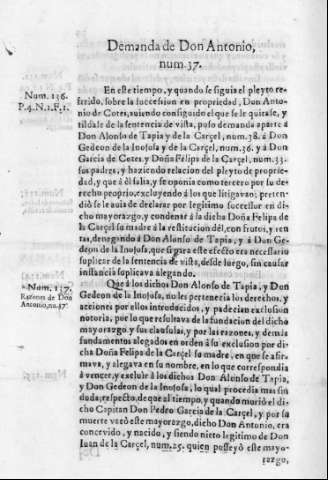 Demanda de Don Antonio,
num. 37.
Num. 136.
P.4.N.1.F.1.
En este tiempo, y quando se seguia el pleyto re-
ferido, sobre la succession en propriedad, Don Anto-
nio de Cotes, auiendo conseguido el que se le quitasse, y
tildasse de la sentencia de vista, puso demanda aparte á
Don Alonso de Tapia y de la Carçel, num. 38. á Don
Gedeon de la Inojosa y de la Carçel, num. 36. y á Don
Garcia de Cotes, y Doña Felipa de la Carçel, num. 33.
sus padres, y haziendo relacion del pleyto de proprie-
dad, y que á él salia, y se oponia como tercero por su de-
recho proprio, excluyendo á los que litigauan; preten-
diò se le auia de declarar por legitimo successor en di-
cho mayorazgo, y condenar á la dicha Doña Felipa de
la Carçel su madre á la restitucion dél, con frutos, y ren-
tas, denegando á Don Alonso de Tapia, y á Don Ge-
deon de la Inojosa, que si para este efecto era necessario
suplicar de la sentencia de vista, desde luego, sin causar
instancia suplicaua alegando.
Num. 137.
Razones de Don
Antonio, nu. 37.
Que á los dichos Don Alonso de Tapia, y Don
Gedeon de la Inojosa, no les pertenecia los derechos, y
acciones por ellos introducidos, y padecian exclusion
notoria, por lo que resultaua de la fundacion del dicho
mayorazgo y sus clausulas, y por las razones, y demàs
fundamentos alegados en orden á su exclusion por di-
cha Doña Felipa de la Carçel su madre, en que se afir-
maua, y alegaua en su nombre, en lo que correspondia
á vencer, y excluir á los dichos Don Alonso de Tapia,
y Don Gedeon de la Inojosa, lo qual procedia mas sin
duda, respecto, de que al tiempo, y quando muriò el di-
cho Capitan Don Pedro Garcia de la Carçel, y por su
muerte vacò este mayorazgo, dicho Don Antonio, era
concevido, y nacido, y siendo nieto legitimo de Don
Iuan de la Carçel, num. 25. quien posseyò este mayo-
razgo,